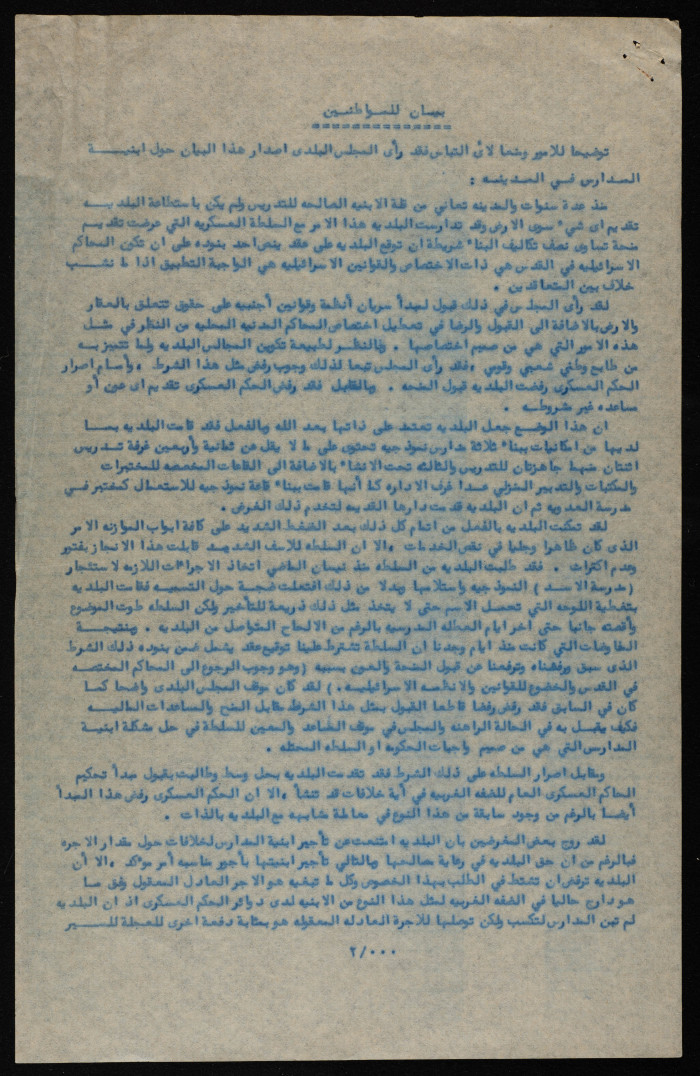 بيان للمواطنين
توضيحا للامور ومنعا لائى التباس فقد رأى المجلس البلدى اصدار هذا البيان حول ابنيـــة
المدارس فـي المدينـه :
منذ عدة سنوات والمدينه تعاني من قلة الابنيه الصالحه للتدريس ولم يكن باستطاعة البلديـــه
تقديم اى شيء سوى الارض وقد تدارست البلديه هذا الامر مع السلطة العسكريه التي عرضت تقديـــم
منحة تساوى نصف تكاليف البناء شريطة ان توقع البلديه على عقد ينص احد بنوده على ان تكون المحاكم
الاسرائيليه في القدس هي ذات الاختصاص والقوانين الاسرائيليه هي الواجبة التطبيق اذا ما نشـــب
خلاف بين المتعاقدين .
لقد رأى المجلس في ذلك قبول لمبدأ سريان أنظمة وقوانين أجنبيه على حقوق تتعلق بالعقار
والارض بالاضافة الى القبول والرضا في تعطيل اختصاص المحاكم المدنيه المحليه من النظر في مثـــل
هذه الامور التي هي من صميم اختصاصها . وبالنظـر لطبيعة تكوين المجالس البلديه ولما تتميز بـه
من طابع وطني شعبي وقومي ،فقد رأى المجلس تبعا لذلك وجوب رفض مثل هذا الشرط ،وأمام اصرار
الحكم العسكرى رفضت البلديه قبول المنحه . وبالمقابل فقد رفض الحكم العسكرى تقديم اى عون أو
مساعده غير مشروطه .
ان هذا الوضع جعل البلديه تعتمد على ذاتها بعد الله وبالفعل فقد قامت البلديه بمـــا
لديها من امكانيات ببناء ثلاثة مدارس نموذجيه تحتوى على ما لا يقل عن ثمانية وأربعين غرفة تـدريس
اثنتان منهما جاهزتان للتدريس والثالثه تحت الانشاء بالاضافة الى القاعات المخصصه للمختبرات
والمكتبات والتدبير المنزلي عـدا غرف الاداره كما أنها قامت ببناء قاعة نموذجيه للاستعمال كمختبر فـي
مدرسة العدويه ثم ان البلديه قدمت دارها القديمه لتخدم ذلك الغرض .
لقد تمكنت البلديه بالفعل من اتمام كل ذلك بعد الضغط الشديد على كافة ابواب الموازنه الامر
الذى كان ظاهرا وجليا في نقص الخدمات ،الا ان السلطه للاسف الشديـد قابلت هذا الانجاز بفتور
وعدم اكتراث . فقد طلبت البلديه من السلطه منذ نيسان الماضي اتخاذ الاجراءات اللازمه لاستئجار
( مدرسة الاسـد ) النموذجيه واستلامها وبدلا من ذلك افتعلت ضجة حول التسميه فقامت البلديه
بتغطية اللوحه التي تحمل الاسم حتى لا يتخذ مثل ذلك ذريعة للتأخير ولكن السلطه طوت الموضوع
وأقصته جانبا حتى اخر ايام العطله المدرسيه بالرغم من الالحاح المتواصل من البلديه . ونتيجـة
المفاوضات التي كانت منذ ايام وجدنا ان السلطة تشترط علينا توقيع عقد يشمل ضمن بنوده ذلك الشرط
الذى سبق ورفضناه وترفعنا عن قبول المنحة والعون بسببه ( وهو وجوب الرجوع الى المحاكم المختصه
في القدس والخضوع للقوانين والانظمه الاسرائيليـه . ) لقد كان موقف المجلس البلدى واضحا كمـا
كان في السابق فقد رفض رفضا قاطعا القبول بمثل هذا الشرط مقابل المنح والمساعدات الماليـه
فكيف يقبـل به في الحالة الراهنه والمجلس في موقف المساعد والمعين للسلطة في حل مشكلة ابنيـة
المدارس التي هي من صميم واجبات الحكومه او السلطه المحتله .
ومقابل اصرار السلطه على ذلك الشرط فقد تقدمت البلديه بحل وسط وطالبت بقبول مبدأ تحكيم
الحاكم العسكرى العام للضفه الغربيه في أية خلافات قد تنشأ ،الا ان الحكم العسكرى رفض هذا المبدأ
أيضـا بالرغم من وجود سابقة من هذا النوع في معاملة مشابهه مع البلديه بالذات .
لقد روج بعض المغرضين بان البلديه امتنعت عن تأجير ابنية المدارس لخلافات حول مقدار الاجره
فبالرغم من ان حق البلديه في رعاية مصالحها وبالتالي تأجير ابنيتها بأجور مناسبه أمر مؤكد ،الا أن
البلديه ترفض ان تشتط في الطلب بهذا الخصوص وكل ما تبغيه هو الاجر العادل المعقول وفق مـا
هو دارج حاليا في الضفه الغربيه لمثل هذا النوع من الابنيه لدى دوائر الحكم العسكرى اذ ان البلديه
لم تبن المدارس لتكسب ولكن توصلها للاجرة العادله المعقوله هو بمثابة دفعة اخرى للعجلة للسـير
٢/٠٠٠